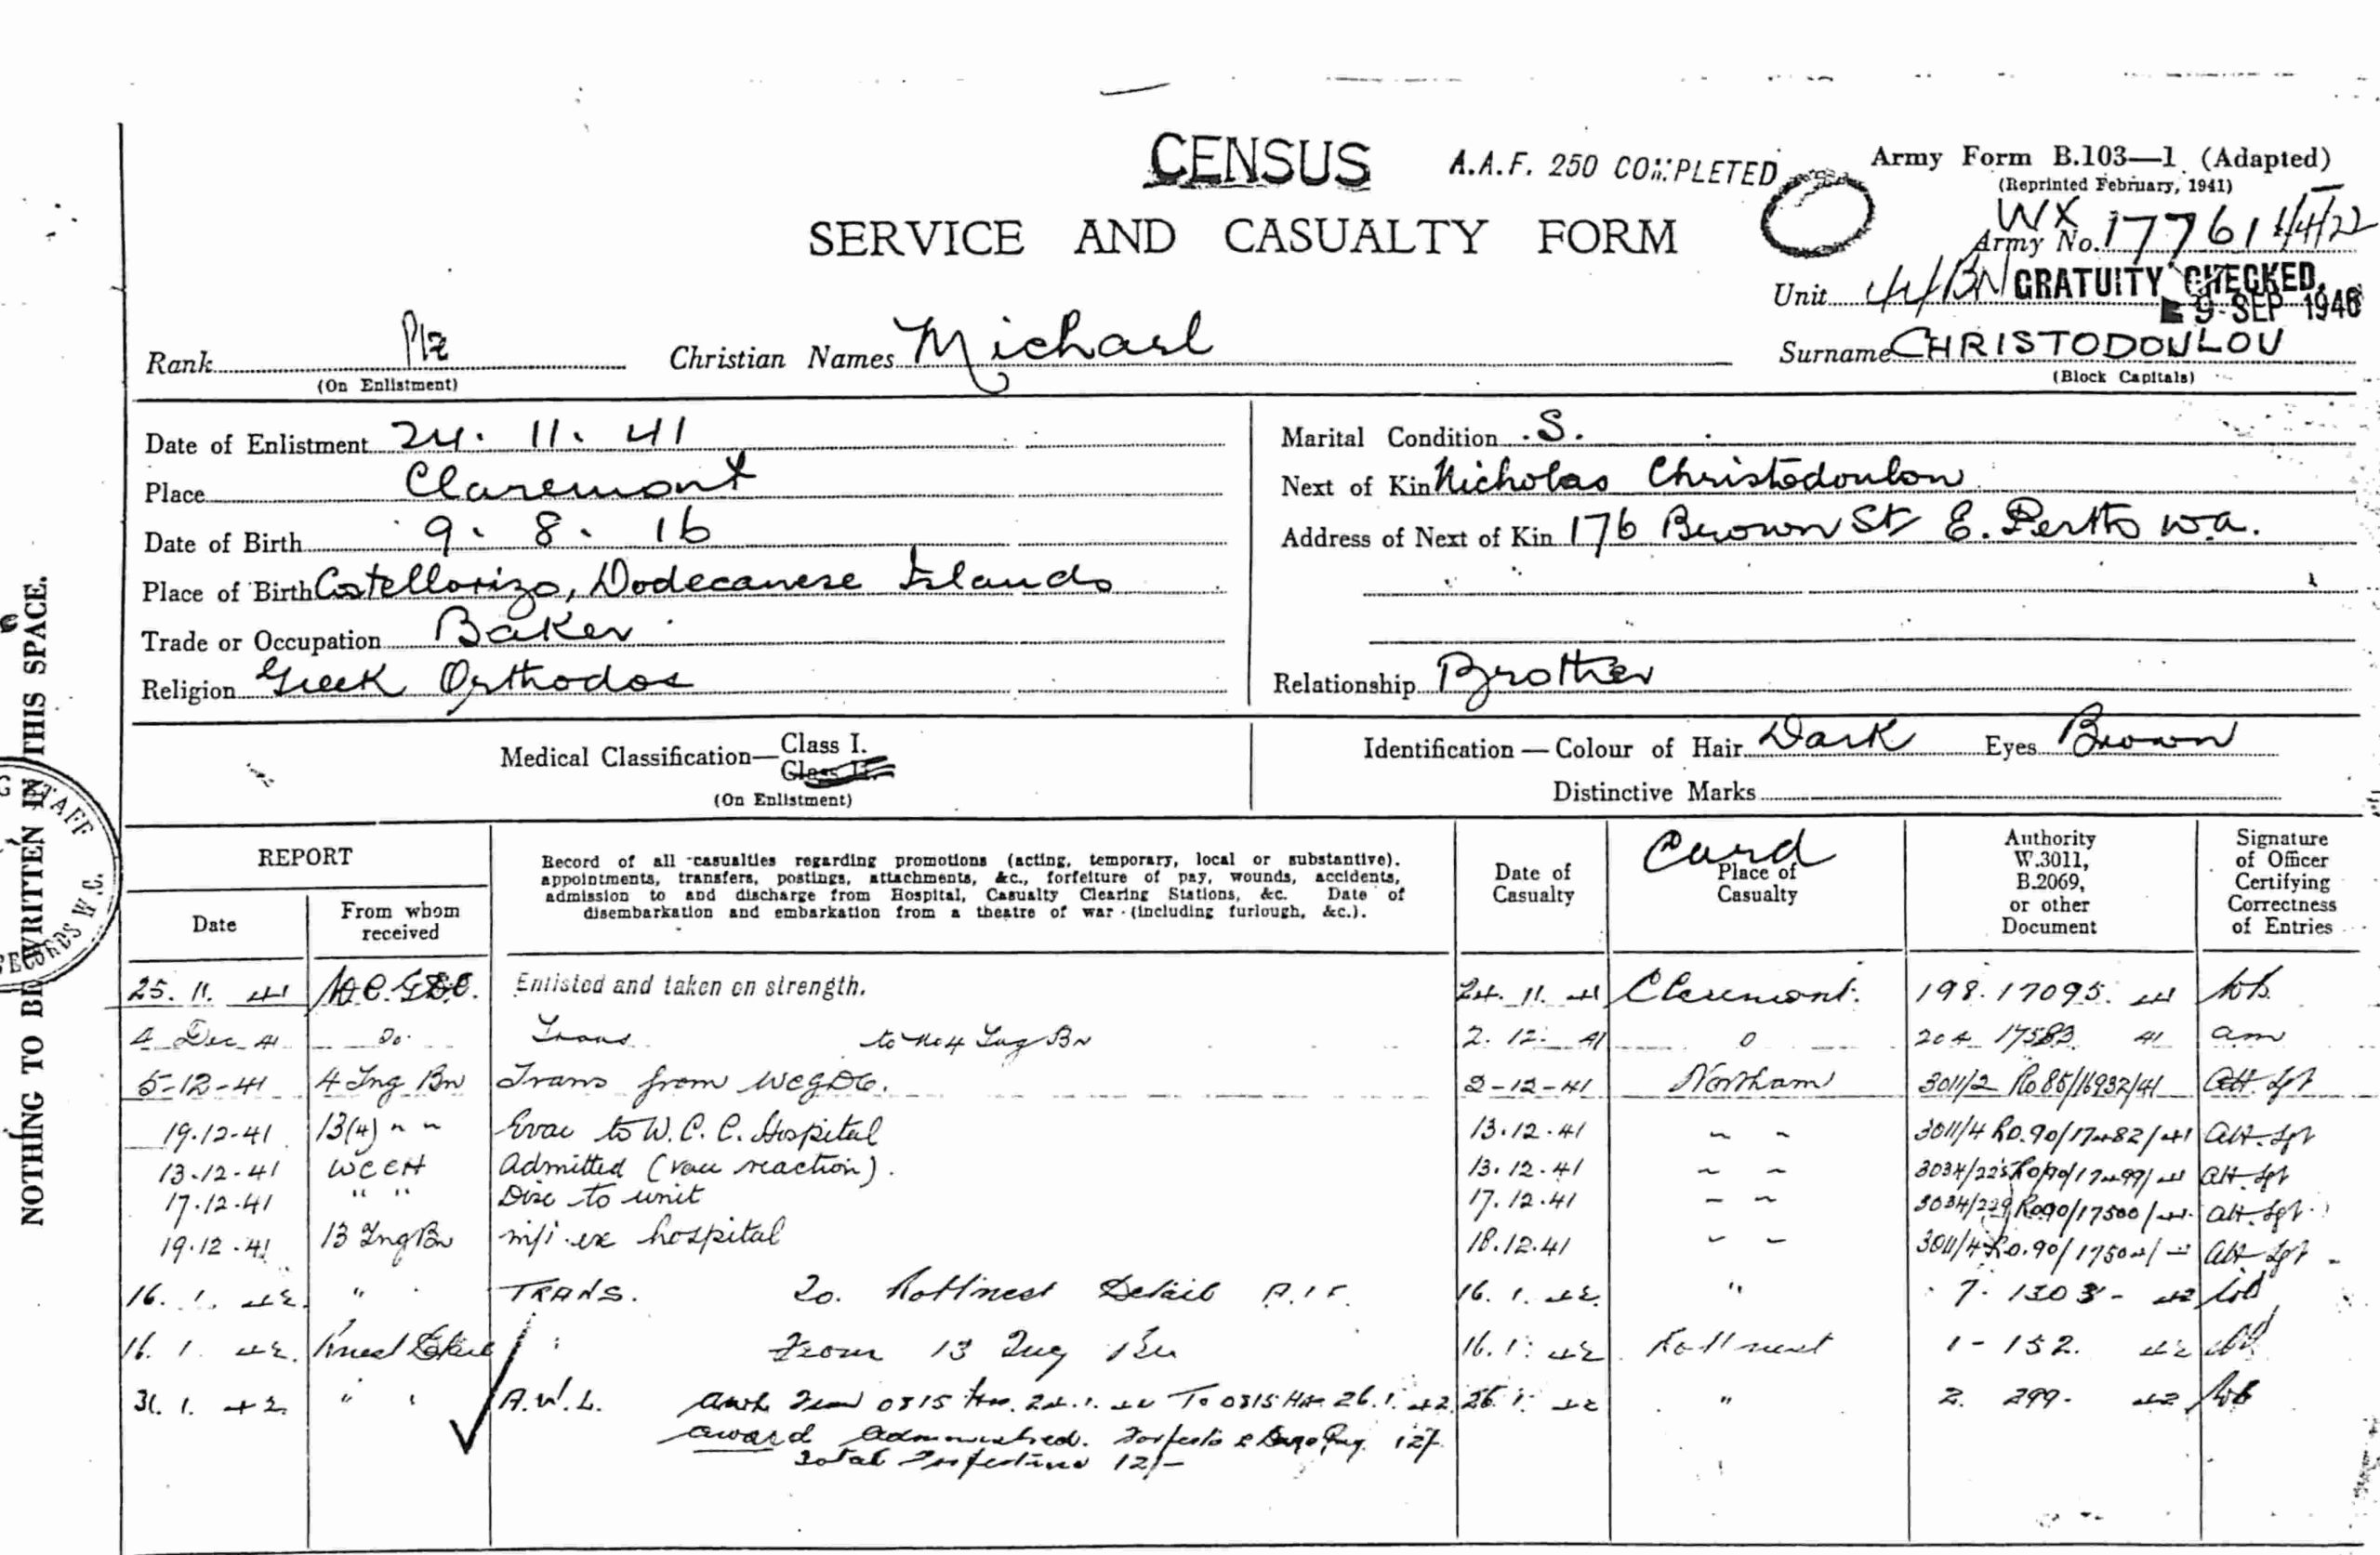 CENSUS A.A.F. 250 COMPLETED
Army Form B.103—1 (Adapted)
(Reprinted February, 1941)
SERVICE AND CASUALTY FORM
WX
Army No. 17761
Unit 4/BN GRATUITY CHECKED
9 SEP 1946
Rank Pte Christian Names Michael Surname CHRISTODOULOU
(On Enlistment) (Block Capitals)
Date of Enlistment 24. 11. 41
Place Claremont
Date of Birth 9. 8. 16
Place of Birth Castellorizo, Dodecanese Islands
Trade or Occupation Baker
Religion Greek Orthodox
Marital Condition .S.
Next of Kin Nicholas Christodoulou
Address of Next of Kin 176 Brown St E. Perth W.A.
Relationship Brother
Medical Classification— Class I.
Class II.
(On Enlistment)
Identification — Colour of Hair Dark Eyes Brown
Distinctive Marks
NOTHING TO BE WRITTEN IN THIS SPACE.
STAFF
RECORDS W.C.
REPORT
Date
From whom received
Record of all casualties regarding promotions (acting, temporary, local or substantive).
appointments, transfers, postings, attachments, &c., forfeiture of pay, wounds, accidents,
admission to and discharge from Hospital, Casualty Clearing Stations, &c. Date of
disembarkation and embarkation from a theatre of war (including furlough, &c.).
Date of Casualty
Card
Place of Casualty
Authority W.3011, B.2069, or other Document
Signature of Officer Certifying Correctness of Entries
25. 11. 41 Enlisted and taken on strength. 24. 11. 41 Claremont. 198. 17095. 41
4 Dec 41 Do. Trans to No 4 Trg Bn 2. 12. 41 204 17583 41 am
5-12-41 4 Trng Bn Trans from WCGDC. 2-12-41 Northam 3011/2 Ro 85/16932/41
19.12.41 13(4) " " Evac to W.C.C. Hospital 13.12.41 " " 3011/4 Ro.90/17482/41
13.12.41 WCCH Admitted (vacc reaction). 13.12.41 " "
17.12.41 " " Disc to unit 17.12.41 " "
19.12.41 13 Trng Bn m/i ex hospital 18.12.41 " "
16. 1. 42. " TRANS. To. Rottnest Details A.I.F. 16. 1. 42. " 7. 1303 - 42
16. 1. 42. R'nest Details " From 13 Trng Bn 16. 1. 42 Rottnest 1 - 152. 42
31. 1. 42. " A.W.L. 0815 Hrs. 24.1.42 To 0815 Hrs 26.1.42 26. 1. 42 " 2. 299. 42
award Administered. Forfeits 2 Days Pay. 12/-
Total Forfeiture 12/-